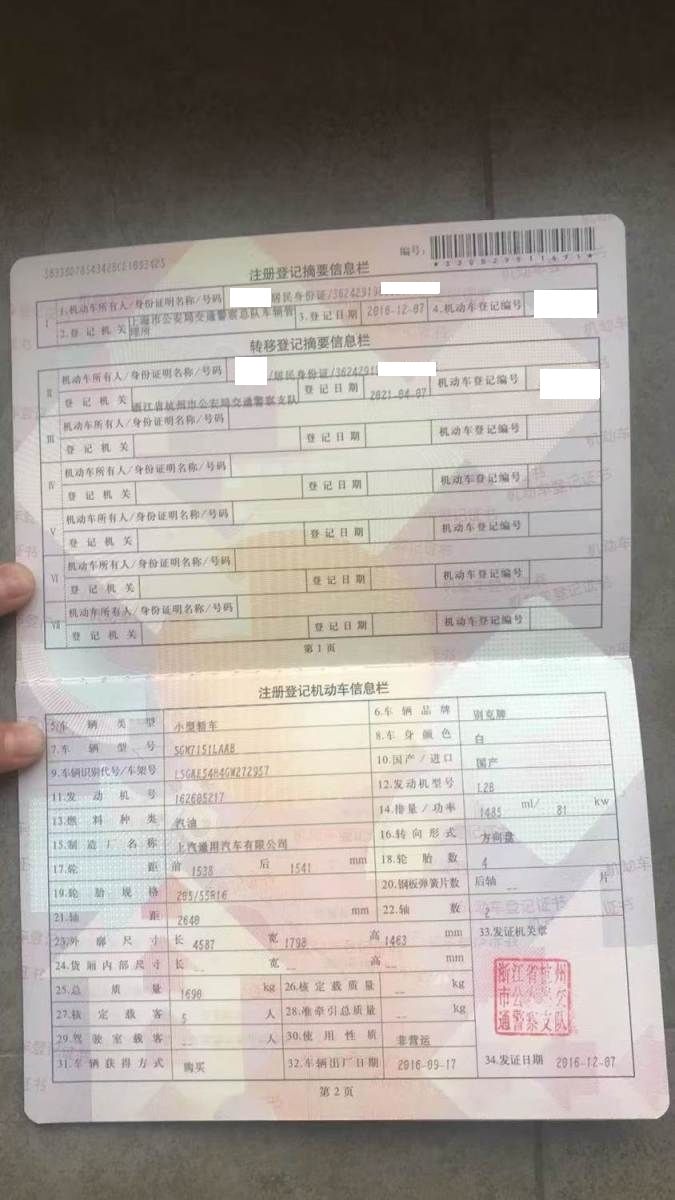 编号:
*330029911491*
注册登记摘要信息栏
I 1.机动车所有人/身份证明名称/号码 居民身份证/3624291
2.登记机关 上海市公安局交通警察总队车辆管理所 3.登记日期 2016-12-07 4.机动车登记编号
转移登记摘要信息栏
II 机动车所有人/身份证明名称/号码 /居民身份证/3624291
登记机关 浙江省杭州市公安局交通警察支队 登记日期 2021-04-07 机动车登记编号
III 机动车所有人/身份证明名称/号码
登记机关 登记日期 机动车登记编号
IV 机动车所有人/身份证明名称/号码
登记机关 登记日期 机动车登记编号
V 机动车所有人/身份证明名称/号码
登记机关 登记日期 机动车登记编号
VI 机动车所有人/身份证明名称/号码
登记机关 登记日期 机动车登记编号
VII 机动车所有人/身份证明名称/号码
登记机关 登记日期 机动车登记编号
第1页
注册登记机动车信息栏
5.车辆类型 小型轿车 6.车辆品牌 别克牌
7.车辆型号 SGM7151LAAB 8.车身颜色 白
9.车辆识别代号/车架号 LSGKE54H4GW272957 10.国产/进口 国产
11.发动机号 162685217 12.发动机型号 L2B
13.燃料种类 汽油 14.排量/功率 1485 ml/ 81 kw
15.制造厂名称 上汽通用汽车有限公司 16.转向形式 方向盘
17.轮距 前 1538 后 1541 mm 18.轮胎数 4
19.轮胎规格 205/55R16 20.钢板弹簧片数 后轴 -- 片
21.轴距 2640 mm 22.轴数 2
23.外廓尺寸 长 4587 宽 1798 高 1463 mm 33.发证机关章
24.货厢内部尺寸 长 -- 宽 -- 高 -- mm
25.总质量 1690 kg 26.核定载质量 -- kg
浙江省杭州市公安局交通警察支队
27.核定载客 5 人 28.准牵引总质量 -- kg
29.驾驶室载客 -- 人 30.使用性质 非营运
31.车辆获得方式 购买 32.车辆出厂日期 2016-09-17 34.发证日期 2016-12-07
第2页